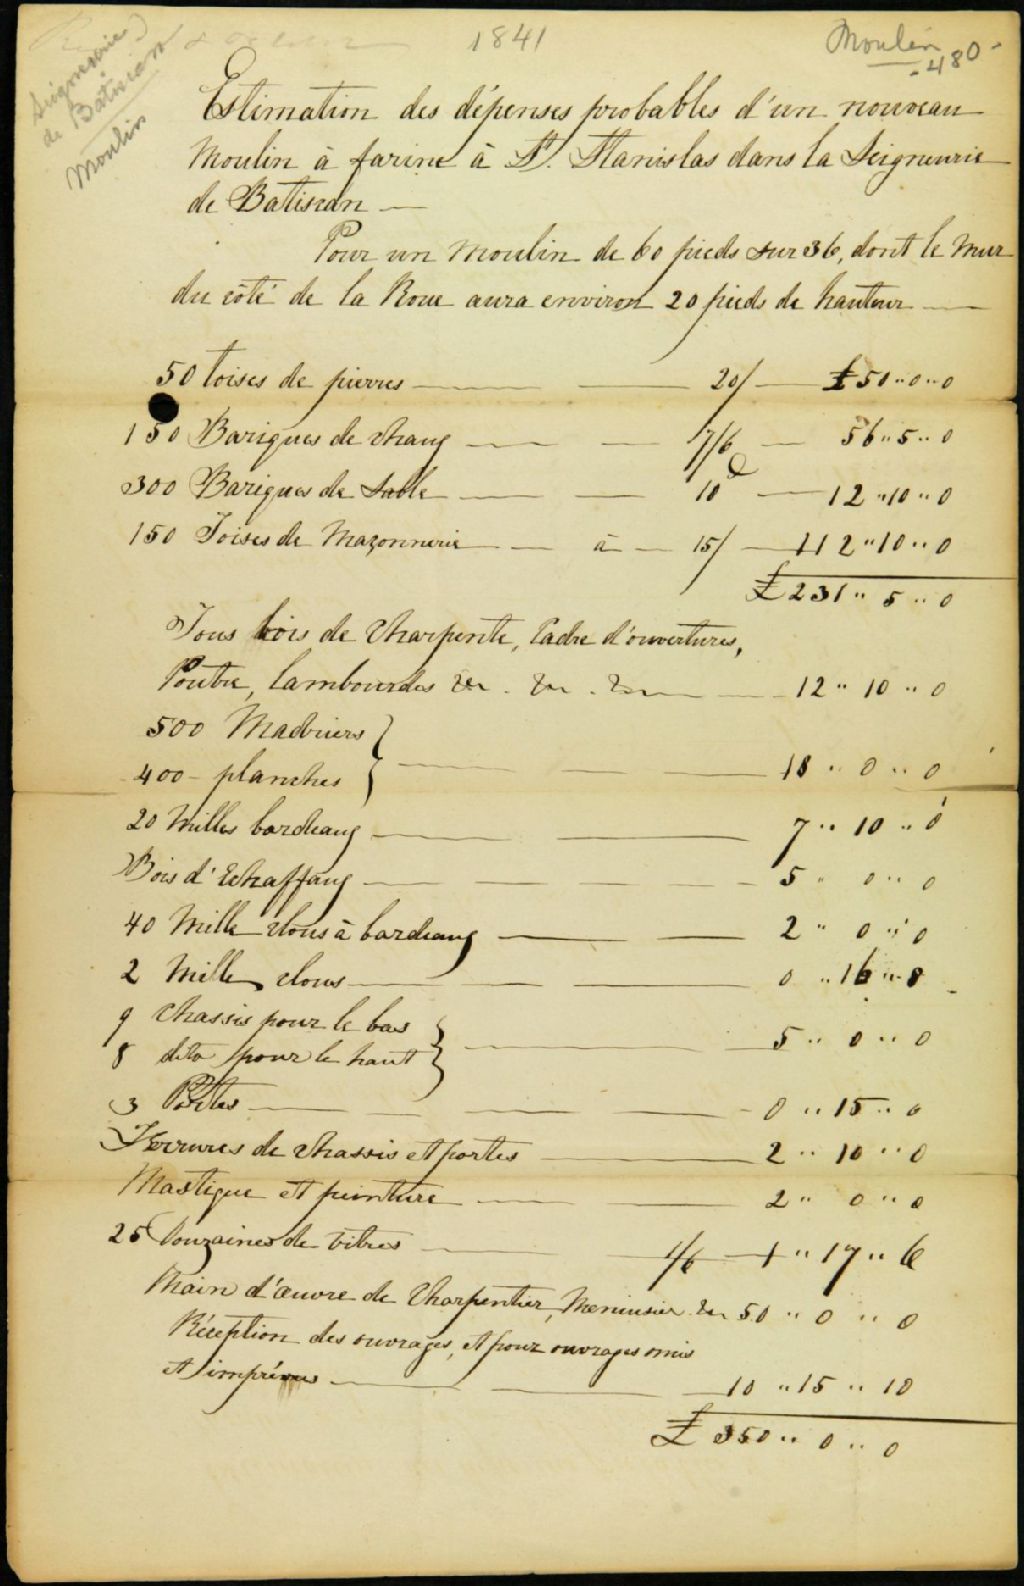 1841
Moulin
480
Seigneurie
de Batiscan
Moulin
Estimation des dépenses probables d'un nouveau
Moulin à farine à St. Stanislas dans la Seigneurie
de Batiscan —
Pour un Moulin de 60 pieds sur 36, dont le Mur
du côté de la Roue aura environ 20 pieds de hauteur —
50 toises de pierres — 20/ — £50 " 0 " 0
150 Bariques de chaux — 7/6 — 56 " 5 " 0
300 Bariques de Sable — 10d — 12 " 10 " 0
150 Toises de Mazonnerie — à — 15/ — 112 " 10 " 0
£231 " 5 " 0
Tous bois de charpente, Cadre d'ouvertures,
Poutre, lambourdes &c. &c. &c. — 12 " 10 " 0
500 Madriers
400 - planches — 18 " 0 " 0
20 Milles bardeaux — 7 " 10 " 0
Bois d'Echaffaux — 5 " 0 " 0
40 Mille clous à bardeaux — 2 " 0 " 0
2 Mille clous — 0 " 16 " 8
9 Chassis pour le bas
8 dito pour le haut — 5 " 0 " 0
3 Portes — 0 " 15 " 0
Ferrures de Chassis et portes — 2 " 10 " 0
Mastique et peinture — 2 " 0 " 0
25 Douzaines de Vitres — 1/6 — 1 " 17 " 6
Main d'œuvre de Charpentier, Menuisier &c 50 " 0 " 0
Réception des ouvrages, et pour ouvrages omis
et imprévus — 10 " 15 " 10
£350 " 0 " 0